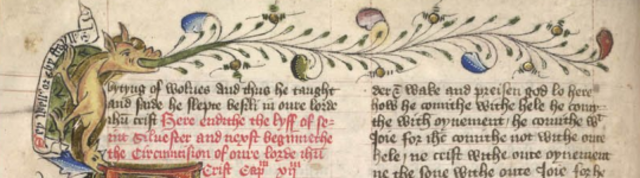 bytyng of wolues and thus he taught
and saide he slepte
in oure lorde
ihū crist Here endithe the lyff of se-
int Siluester and next begynnethe
the Circumsision of oure lorde ihū
Crist Capᵐ xiijᵐ
wake and preisen god to here
how he comithe withe hele he comy-
the with oynement / he comithe wᵗ
Joie for ihū comithe not withe oute
hele / ne crist withe oute oynement
ne the sone withe oute Joie for he